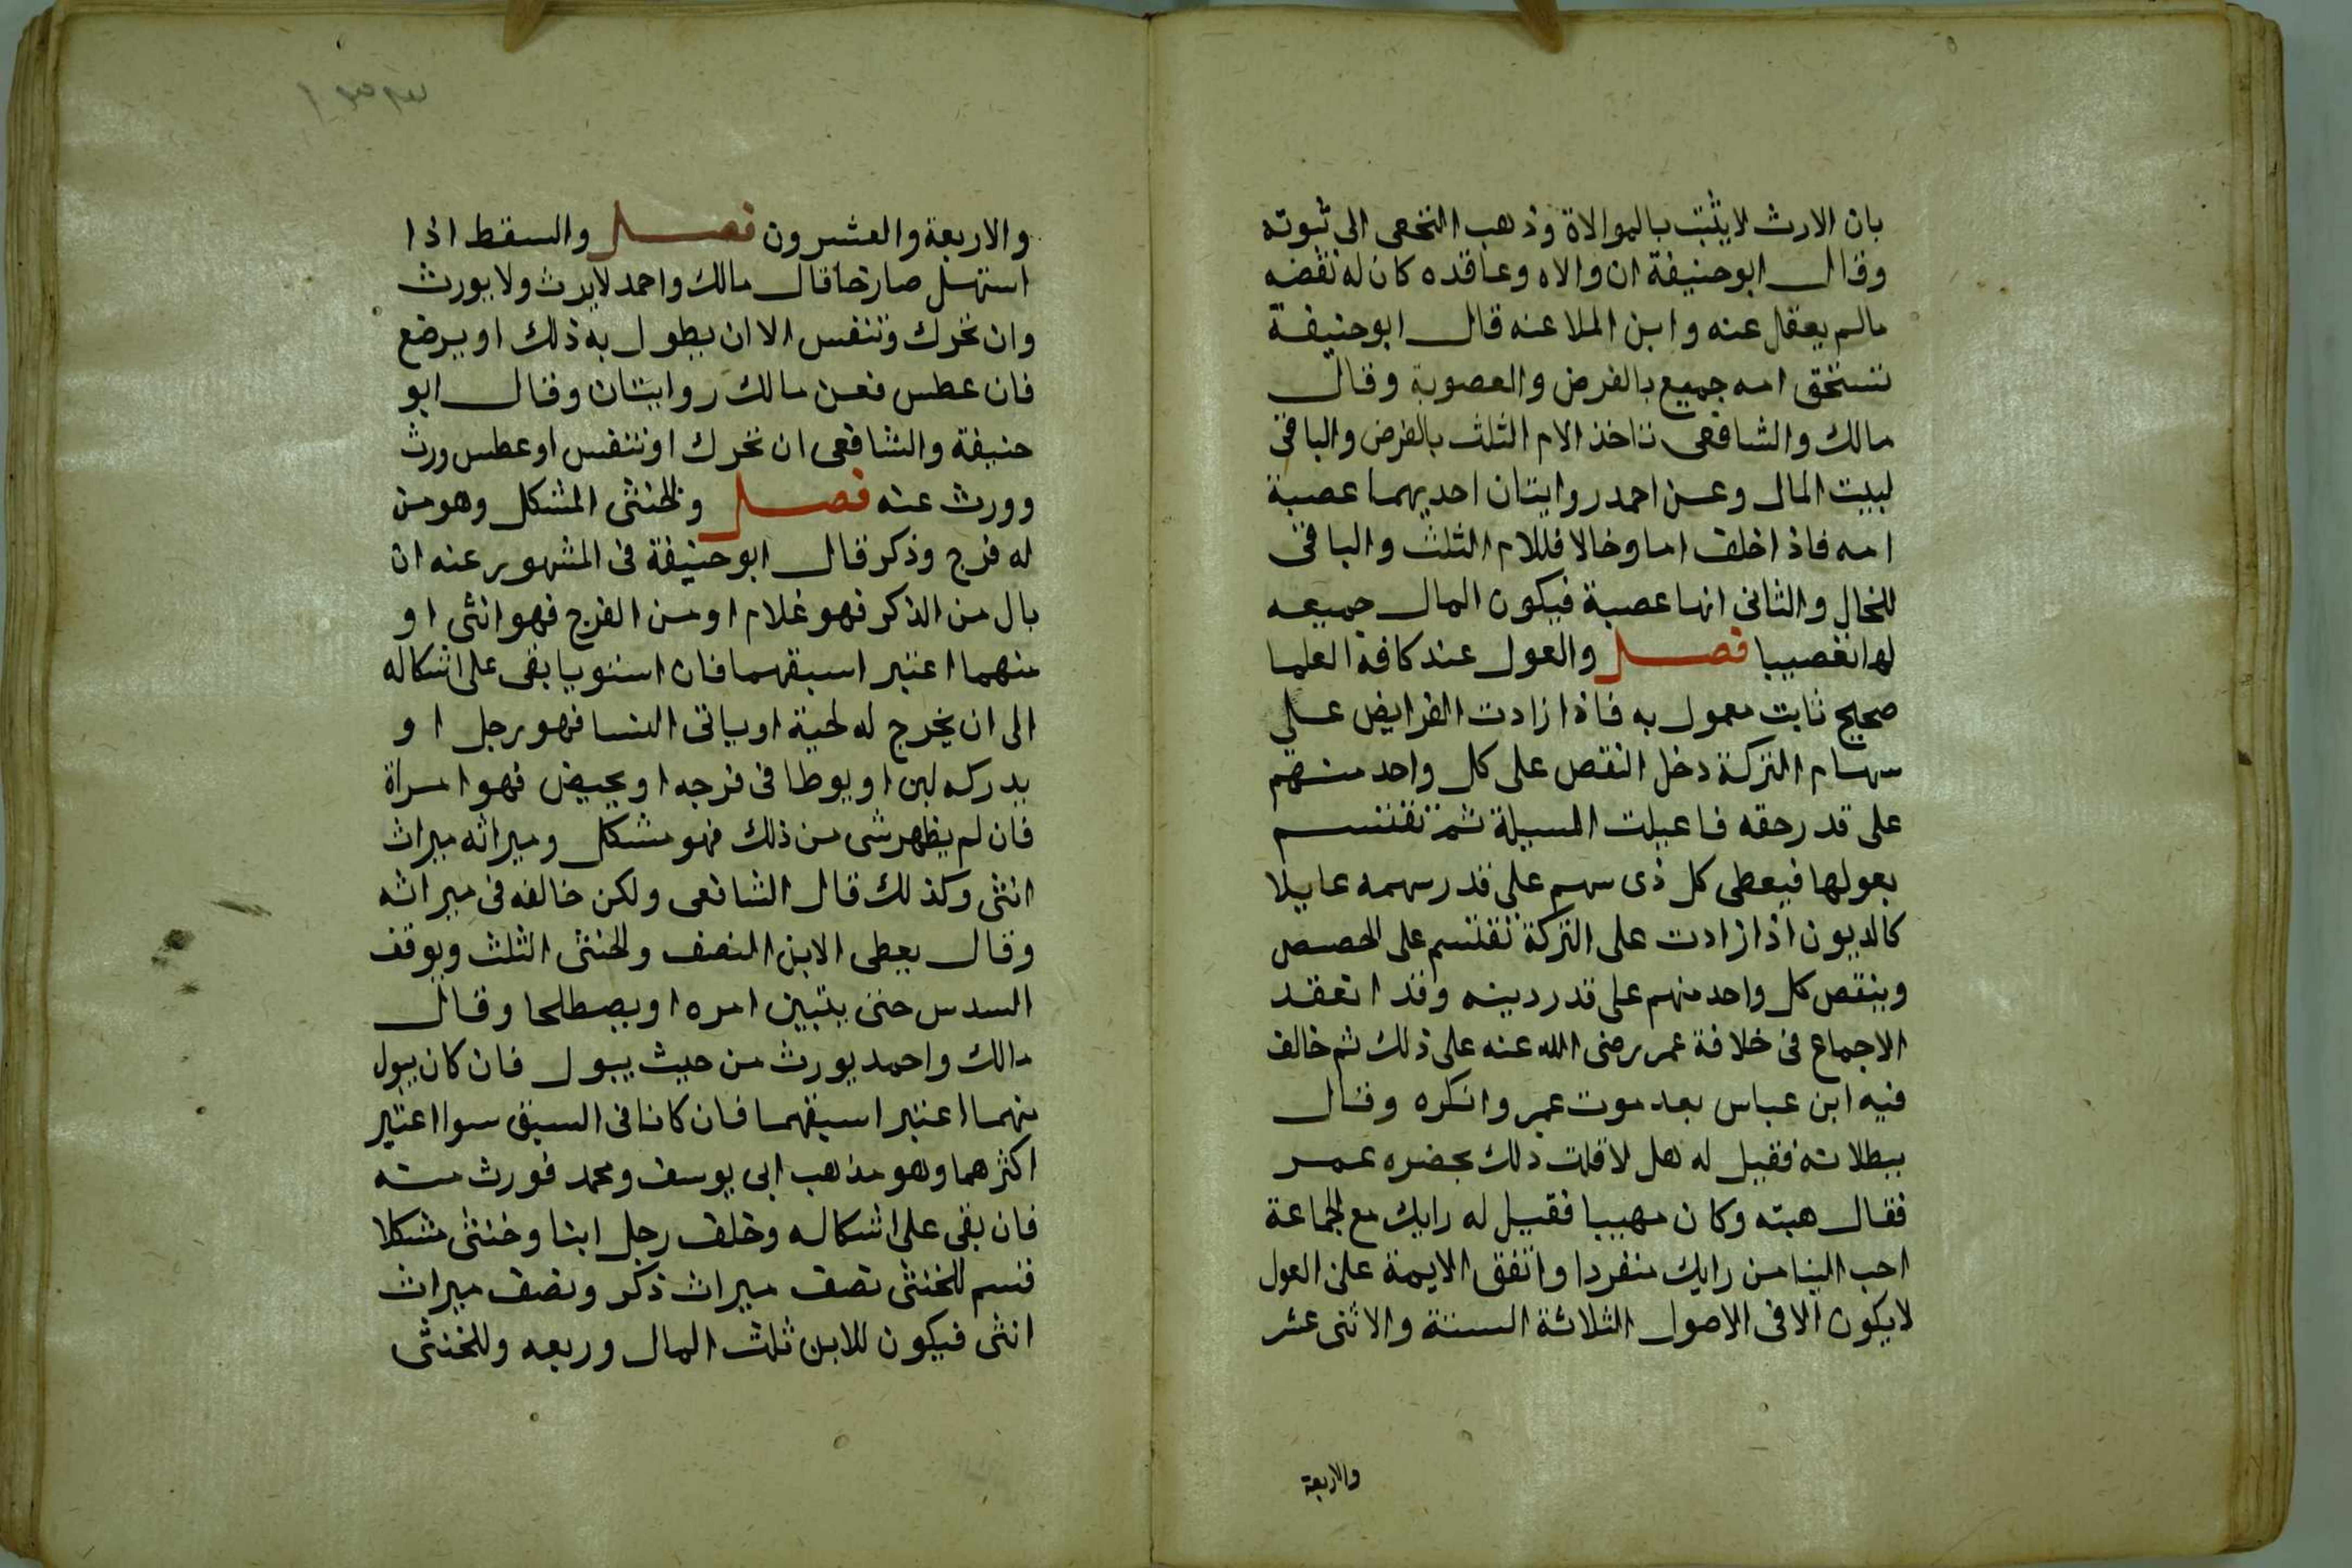 بان الارث لا يثبت بالموالاة وذهب النخعى الى ثبوته
وقال ابو حنيفة ان والاه وعاقده كان له نقضه
مالم يعقل عنه وابن الملاعنه قال ابو حنيفة
تستحق امه جميع بالفرض والعصوبة وقال
مالك والشافعى تاخذ الام الثلث بالفرض والباقى
لبيت المال وعن احمد روايتان احديهما عصبة
امه فاذا خلف اما وخالا فللام الثلث والباقى
للخال والثانى انها عصبة فيكون المال جميعه
لها تعصيبا فصل والعول عند كافة العلما
صحيح ثابت معمول به فاذا زادت الفرايض على
سهام التركة دخل النقص على كل واحد منهم
على قدر حقه فاعيلت المسيلة ثم تقتسم
بعولها فيعطى كل ذى سهم على قدر سهمه عايلا
كالديون اذا زادت على التركة تقتسم على الحصص
وينقص كل واحد منهم على قدر دينه وقد انعقد
الاجماع فى خلافة عمر رضى الله عنه على ذلك ثم خالف
فيه ابن عباس بعد موت عمر وانكره وقال
ببطلانه فقيل له هل لا قلت ذلك بحضره عمر
فقال هبته وكان مهيبا فقيل له رايك مع الجماعة
احب الينا من رايك منفردا واتفق الايمة على ان العول
لا يكون الا فى الاصول الثلاثة الستة والاثنى عشر
والاربعة
والاربعة والعشرون فصل والسقط اذا
استهل صارخا قال مالك واحمد لا يرث ولا يورث
وان تحرك وتنفس الا ان يطول به ذلك او يرضع
فان عطس فعن مالك روايتان وقال ابو
حنيفة والشافعى ان تحرك او تنفس او عطس ورث
وورث عنه فصل والخنثى المشكل وهو من
له فرج وذكر قال ابو حنيفة فى المشهور عنه ان
بال من الذكر فهو غلام او من الفرج فهو انثى او
منهما اعتبر اسبقهما فان استويا بقى على اشكاله
الى ان يخرج له لحية او ياتى النسا فهو رجل او
يدركه لبن او يوطا فى فرجه او يحيض فهو امراة
فان لم يظهر شى من ذلك فهو مشكل وميراثه ميراث
انثى وكذلك قال الشافعى ولكن خالفه فى ميراثه
وقال يعطى الابن النصف والخنثى الثلث ويوقف
السدس حتى يتبين امره او يصطلحا وقال
مالك واحمد يورث من حيث يبول فان كان يبول
منهما اعتبر اسبقهما فان كانا فى السبق سوا اعتبر
اكثرهما وهو مذهب ابى يوسف ومحمد فورث منه
فان بقى على اشكاله وخلف رجل ابنا وخنثى مشكلا
قسم للخنثى نصف ميراث ذكر ونصف ميراث
انثى فيكون للابن ثلث المال وربعه وللخنثى